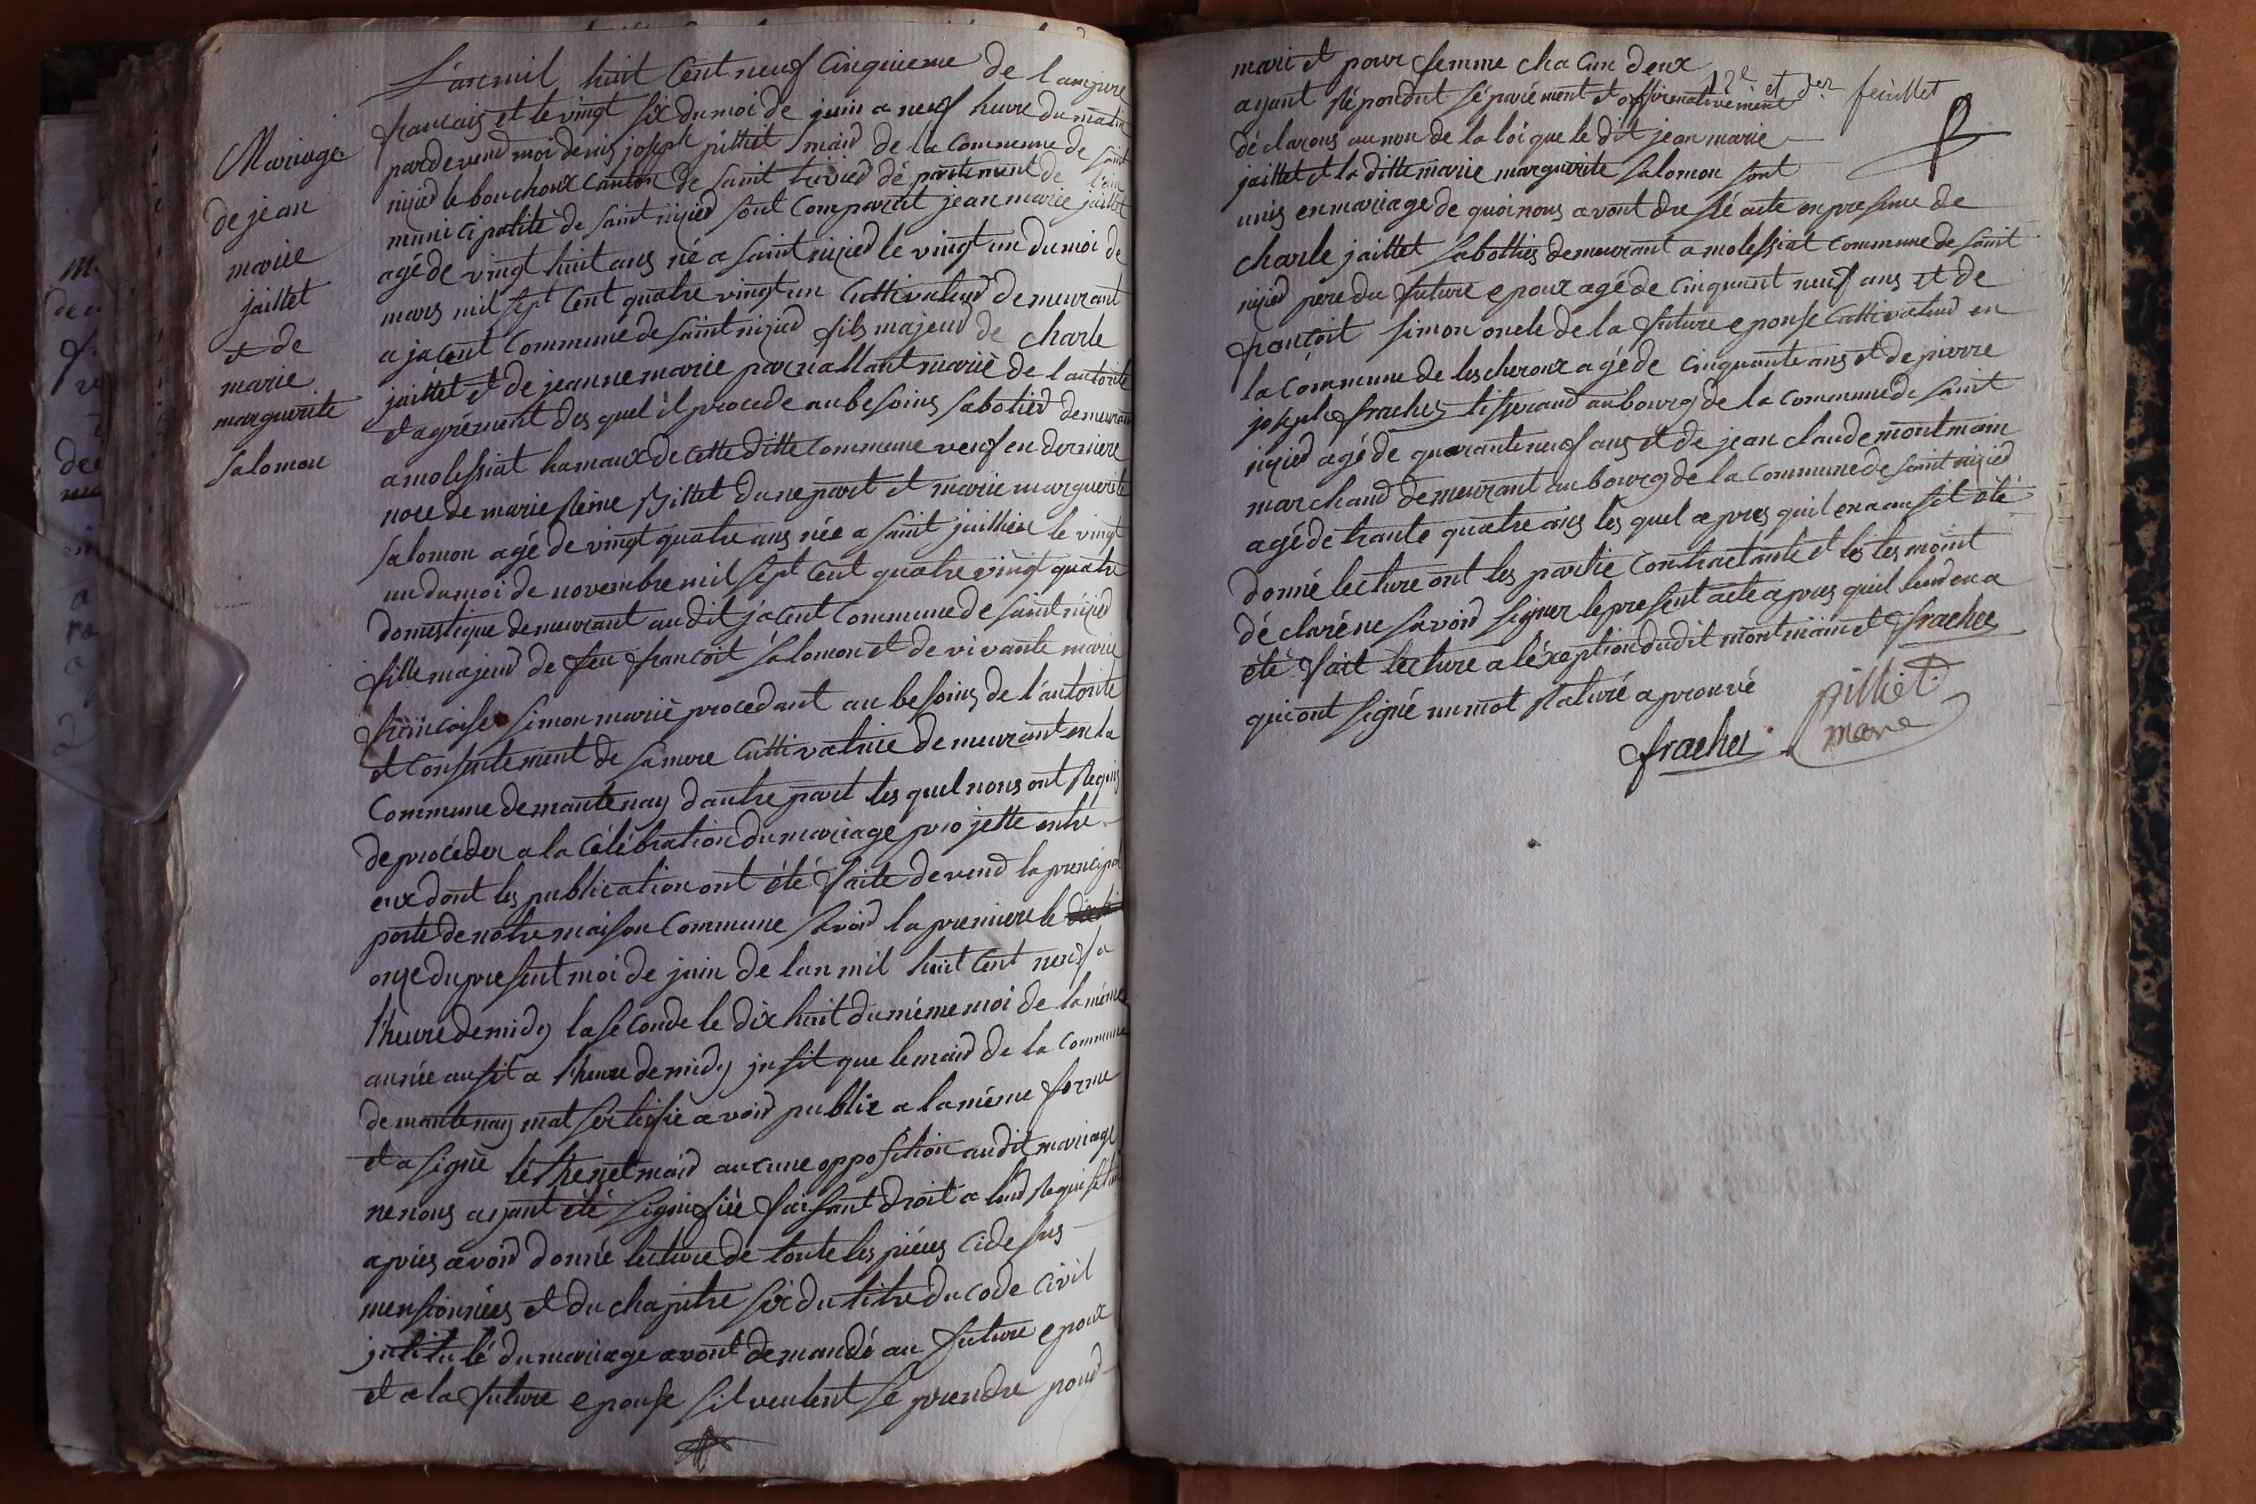 Mariage
de jean
marie
jaillet
et de
marie
marguerite
salomon
L'an mil huit Cent neuf Cinquieme de l ampire
francais et le vingt six du moi de juin a neuf heure du matin
par devend moi denis joseph pilliet maid de la Commune de saint
nizied le bouchoux Canton de saint trivied dé partement de l'ain
muni cipalité de saint nizied sont Comparut jean marie jaillet
agé de vingt huit ans né a saint nizied le vingt un du moi de
mars mil sept Cent quatre vingt un Cultivateud demeurant
a jacent Commune de saint nizied fils majeud de charle
jaillet et de jeanne marie parnallant marié de l autorité
et agrément des quel il procede au besoins sabotied demeurant
a molessiat hamaux de cette ditte Commune veuf en derniere
noce de marie Reine Billet dune part et marie marguerite
salomon agé de vingt quatre ans née a saint juillien le vingt
un du moi de novembre mil sept Cent quatre vingt quatre
domestique demeurant audit jacent Commune de saint nizied
fille majeud de feu francoit salomon et de vivante marie
francoise simon marié procedant au besoins de l'autorité
et Consentement de sa mere Cultivatrice demeurant en la
Commune de mantenay d'autre part les quel nous ont Requis
de procéder a la Célébration du mariage projette entre
eux dont les publication ont été faite devend la principal
porte de notre maison Commune savoid la premiere le
onze du present moi de juin de lan mil huit Cent neuf a
l'heure de midy la seconde le dix huit du même moi de la même
année aussit a l'heure de midy jnsit que le maid de la Commune
de mantenay mat sertifié avoid publié a la même forme
et a signé léthenet maid aucune opposition audit mariage
ne nous ayant été signifiée faisant droit a leud Requisition
apries avoid donné lecture de toute les piéces Cidessus
mensionnées et du chapitre six du titre du code Civil
jntitulé du mariage avont demandé au future epoux
et a la future epouse sil veulent se prendre poud
mari et pour femme cha Cun deux
12e et der feuillet
ayant Répondut séparément et affirmativement
déclarons au non de la loi que le dit jean marie
jaillet et la ditte marie marguerite salomon sont
unis en mariage de quoi nous avont dressé acte en presence de
charle jaillet sabotties demeurant a molessiat Commune de saint
nizied pere du future epoux agé de Cinquant neuf ans et de
francoit simon oncle de la future epouse Cultivateud en
la Commune de lescheroux agé de Cinquante ans et de pierre
joseph frachet tisserand au bourg de la Commune de saint
nizied agé de quarante neuf ans et de jean claude montmain
marchand demeurant au bourg de la Commune de saint nizied
agé de trante quatre ans les quel apres quil en a aussit été
donné lecture ont les partie Contractante et les tesmoint
déclaré ne savoid signer le present acte apres quil leud en a
été fait lecture a léxeption dudit montmain et frachet
qui ont signé un mot Raturé aprouvé
pilliet
mare
frachet